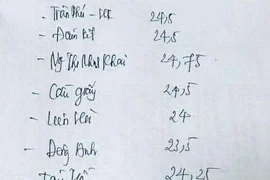 - Trần Phú - HK 24,5
- Đoàn Kết 24,5
- Ng Thị Minh Khai 24,75
- Cầu giấy 24,5
- Liên Hà 24
- Đông Anh 23,5
24,25